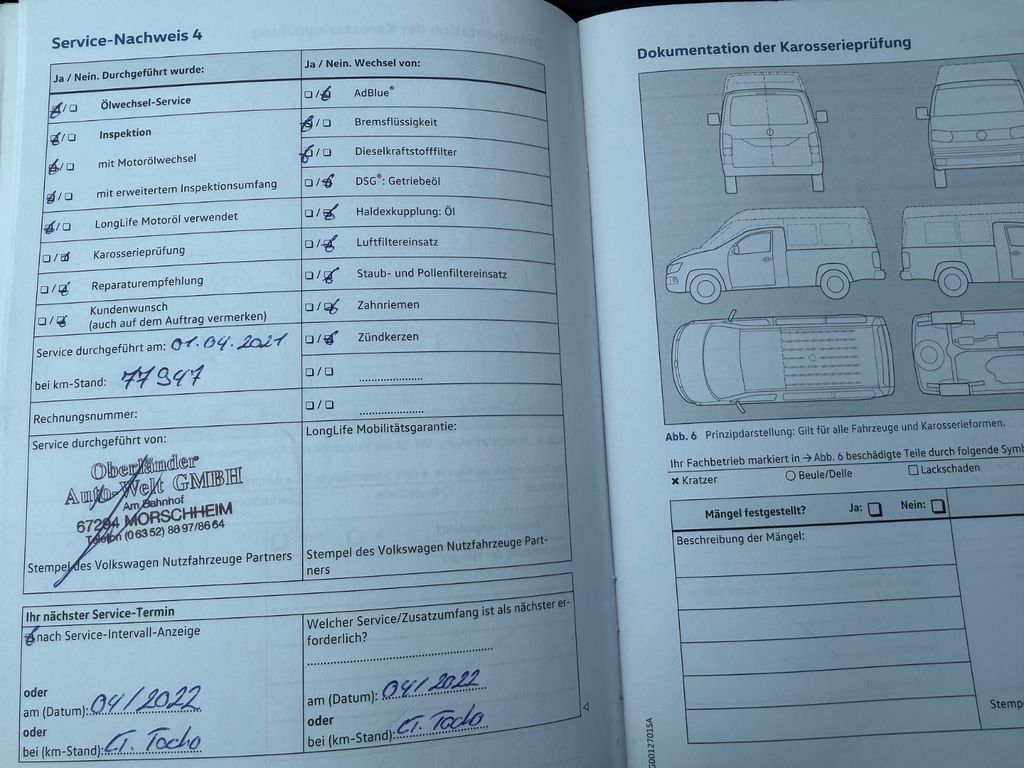 Service-Nachweis 4
Ja / Nein. Durchgeführt wurde:
Ölwechsel-Service
Inspektion
mit Motorölwechsel
mit erweitertem Inspektionsumfang
LongLife Motoröl verwendet
Karosserieprüfung
Reparaturempfehlung
Kundenwunsch
(auch auf dem Auftrag vermerken)
Service durchgeführt am: 01.04.2021
bei km-Stand: 77947
Rechnungsnummer:
Service durchgeführt von:
Oberländer
Auto-Welt GMBH
Am Bahnhof
67294 MORSCHHEIM
Telefon (0 63 52) 88 97/86 64
Stempel des Volkswagen Nutzfahrzeuge Partners
Ja / Nein. Wechsel von:
AdBlue®
Bremsflüssigkeit
Dieselkraftstofffilter
DSG®: Getriebeöl
Haldexkupplung: Öl
Luftfiltereinsatz
Staub- und Pollenfiltereinsatz
Zahnriemen
Zündkerzen
LongLife Mobilitätsgarantie:
Stempel des Volkswagen Nutzfahrzeuge Part-
ners
Ihr nächster Service-Termin
nach Service-Intervall-Anzeige
oder
am (Datum): 04/2022
oder
bei (km-Stand): lt. Tacho
Welcher Service/Zusatzumfang ist als nächster er-
forderlich?
am (Datum): 04/2022
oder
bei (km-Stand): lt. Tacho
Dokumentation der Karosserieprüfung
Abb. 6 Prinzipdarstellung: Gilt für alle Fahrzeuge und Karosserieformen.
Ihr Fachbetrieb markiert in → Abb. 6 beschädigte Teile durch folgende Symb
Kratzer
Beule/Delle
Lackschaden
Mängel festgestellt? Ja: Nein:
Beschreibung der Mängel:
Stemp